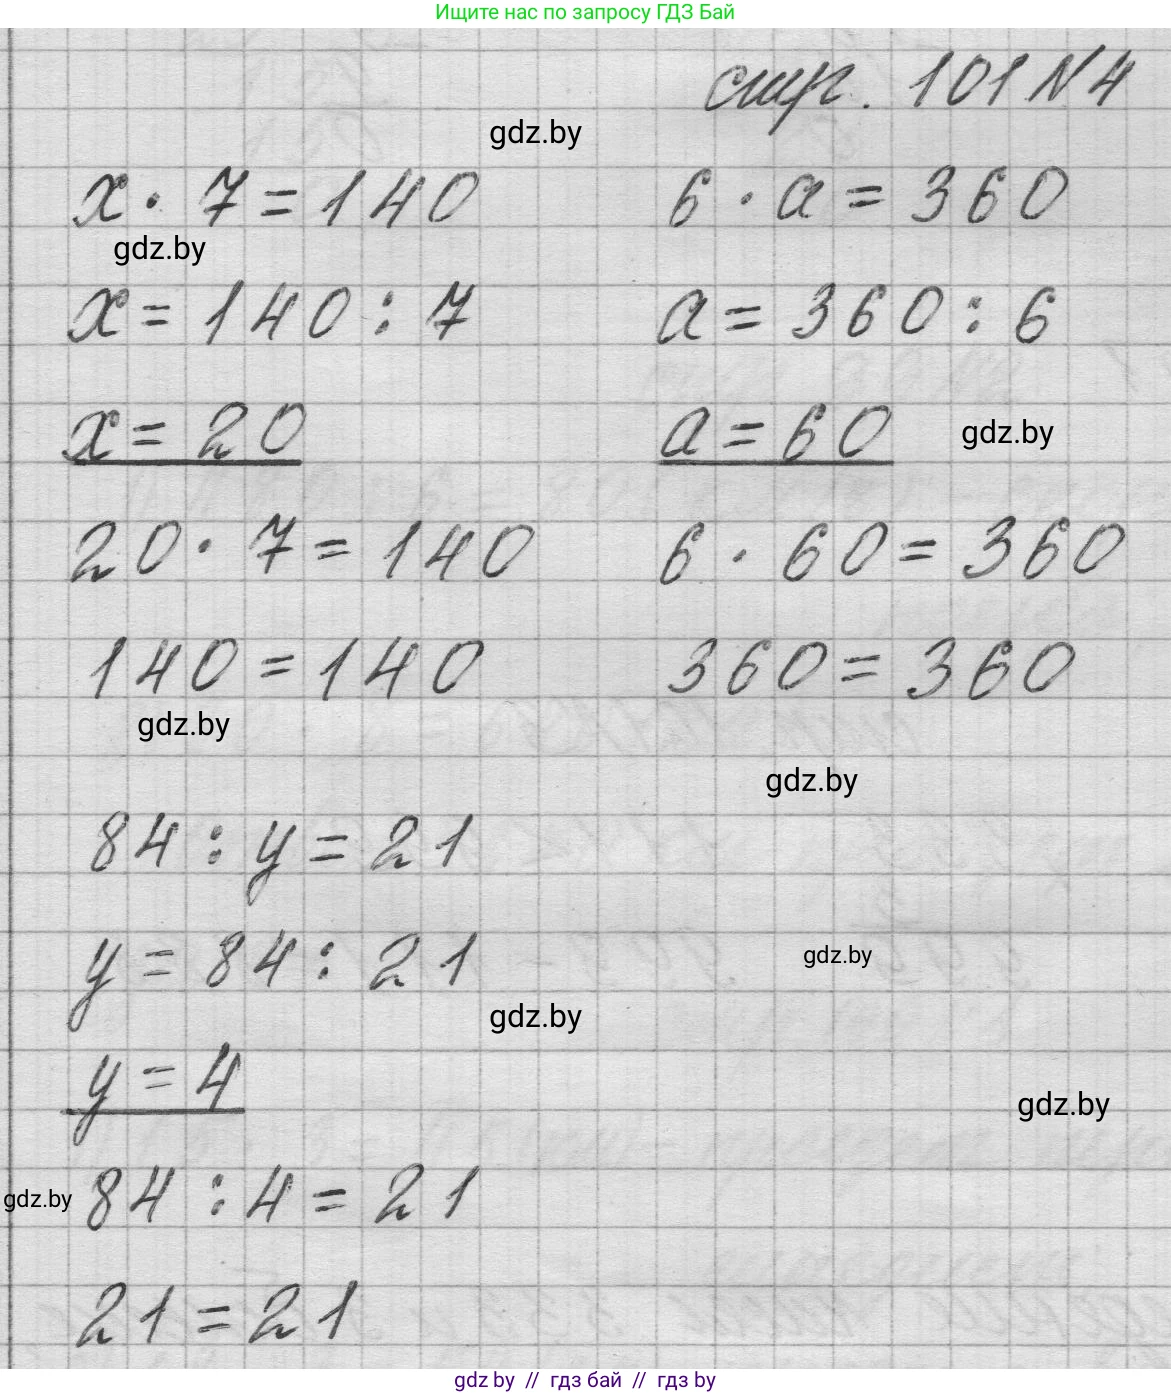 Ищите нас по запросу ГДЗ Бай
стр. 101 N4
gdz.by
x · 7 = 140
6 · a = 360
gdz.by
x = 140 : 7
a = 360 : 6
x = 20
a = 60
gdz.by
20 · 7 = 140
6 · 60 = 360
140 = 140
360 = 360
gdz.by
gdz.by
84 : y = 21
y = 84 : 21
gdz.by
gdz.by
y = 4
gdz.by
gdz.by
84 : 4 = 21
21 = 21
gdz by // гдз бай // gdz by